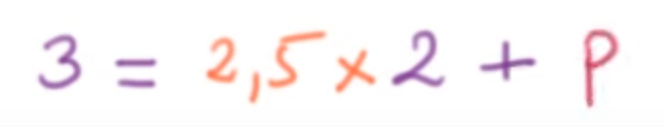 3 = 2,5 × 2 + p